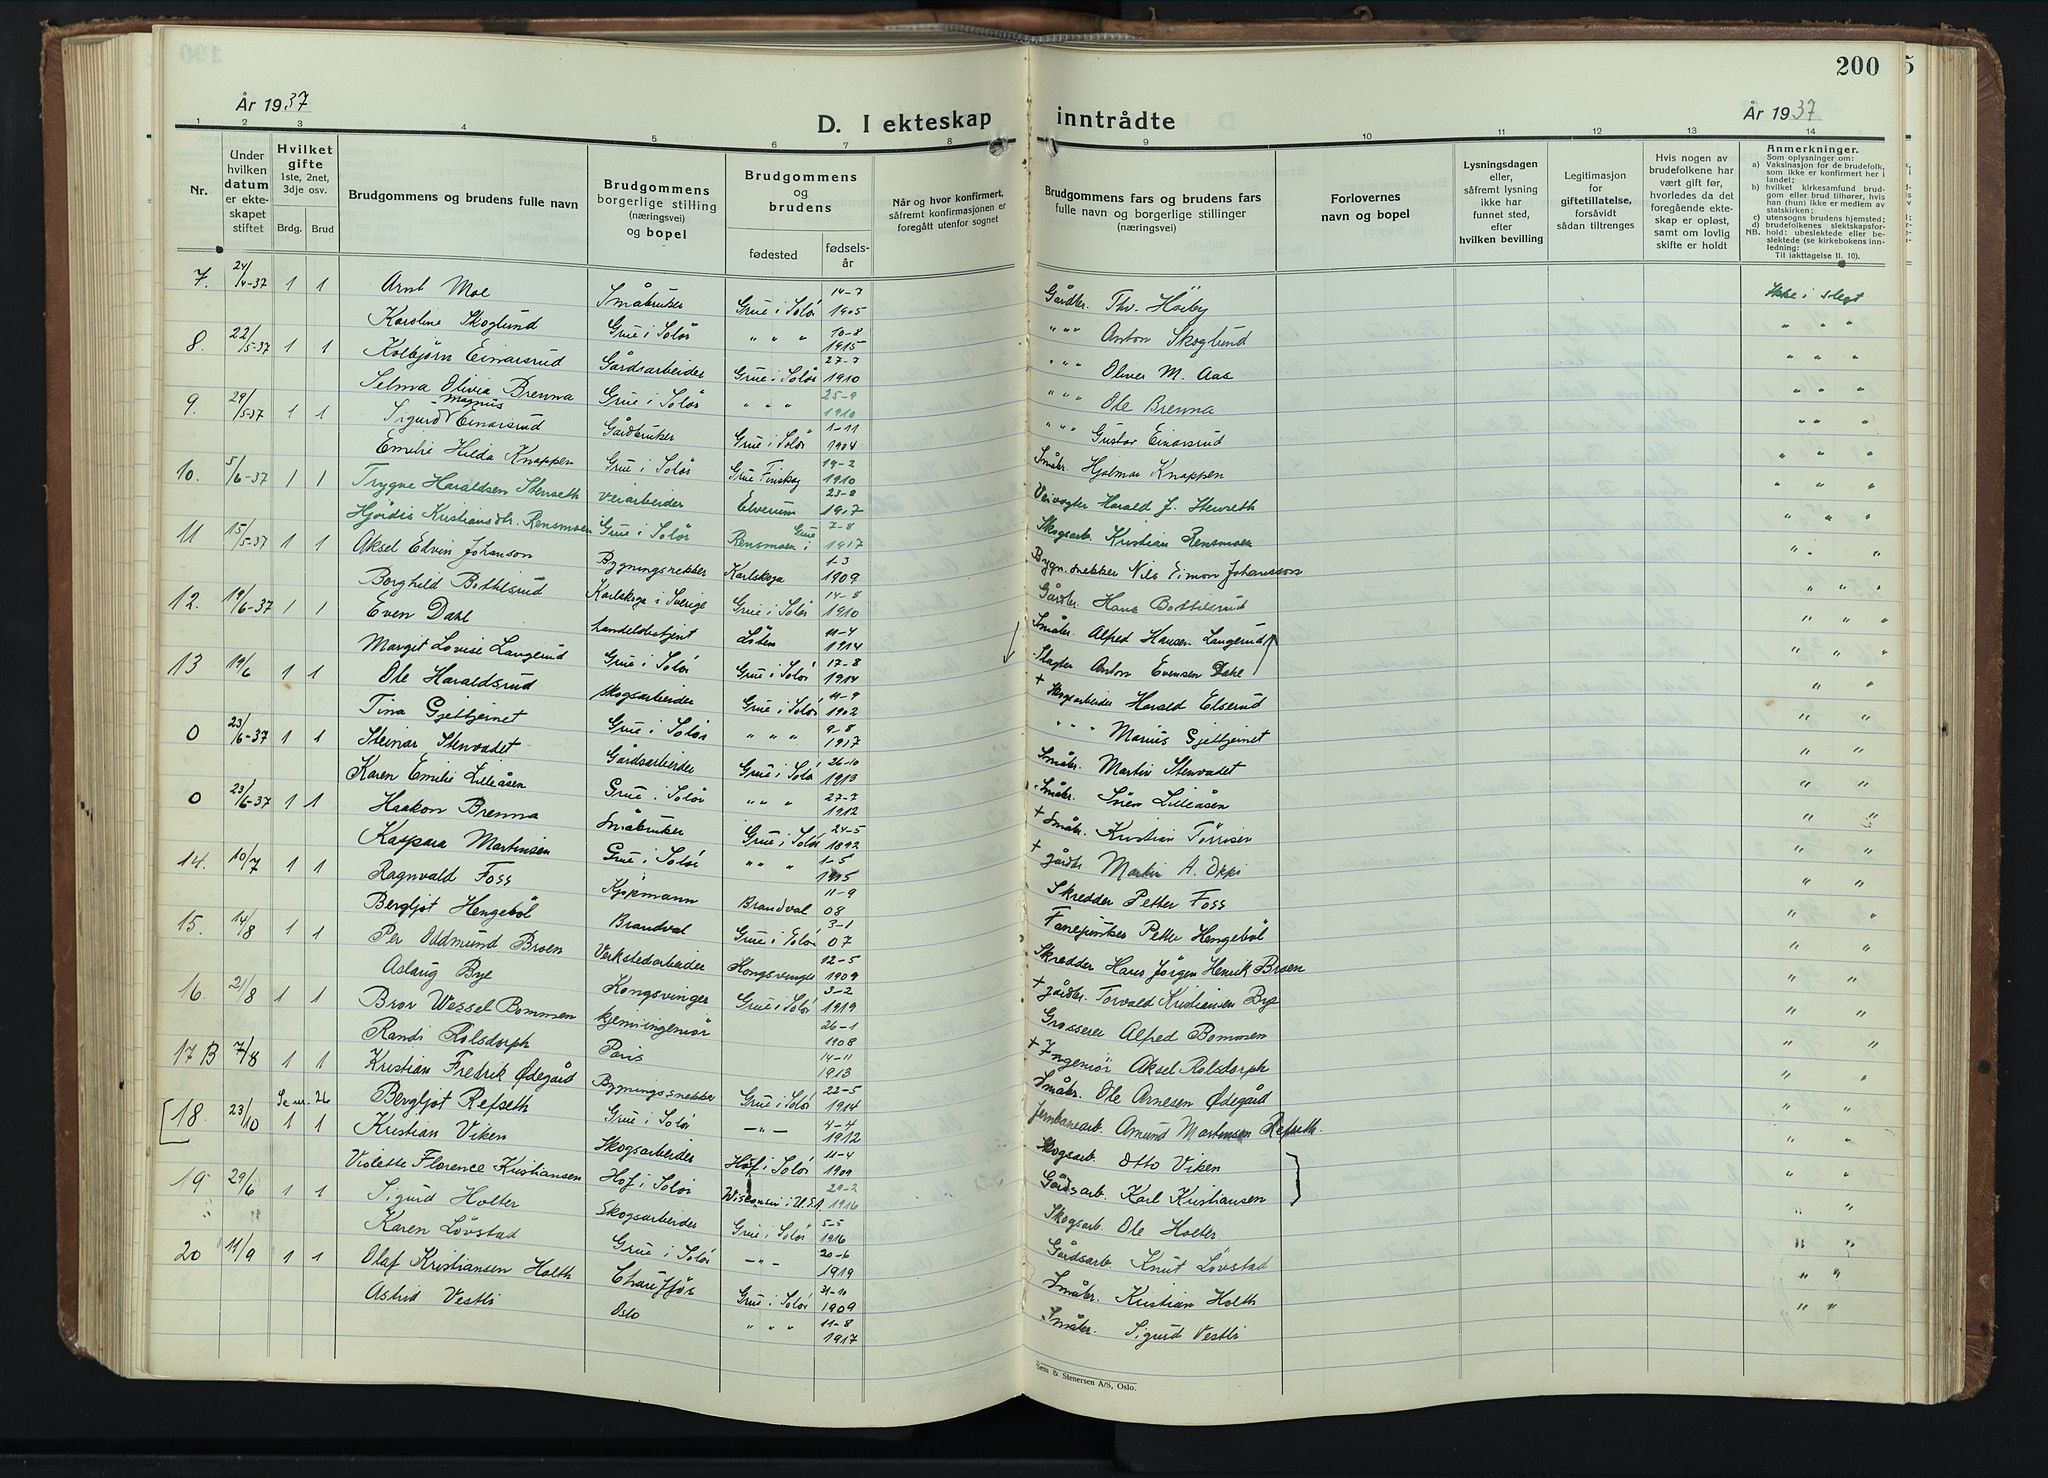 200
År 1937
D. I ekteskap inntrådte
År 1937
1 2 3 4 5 6 7 8 9 10 11 12 13 14
Nr.
Under hvilken datum er ekteskapet stiftet
Hvilket gifte 1ste, 2net, 3dje osv.
Brdg. Brud
Brudgommens og brudens fulle navn
Brudgommens borgerlige stilling (næringsvei) og bopel
Brudgommens og brudens
fødested
fødsels-år
Når og hvor konfirmert, såfremt konfirmasjonen er foregått utenfor sognet
Brudgommens fars og brudens fars fulle navn og borgerlige stillinger (næringsvei)
Forlovernes navn og bopel
Lysningsdagen eller, såfremt lysning ikke har funnet sted, efter hvilken bevilling
Legitimasjon for giftetillatelse, forsåvidt sådan tiltrenges
Hvis nogen av brudefolkene har vært gift før, hvorledes da det foregående ekteskap er opløst, samt om lovlig skifte er holdt
Anmerkninger.
Som oplysninger om:
a) Vaksinasjon for de brudefolk, som ikke er konfirmert her i landet;
b) hvilket kirkesamfund brudgom eller brud tilhører, hvis han (hun) ikke er medlem av statskirken;
c) utensogns brudens hjemsted;
d) brudefolkenes slektskapsforhold: ubeslektede eller beslektede (se kirkebokens innledning;
NB.
Til iakttagelse II. 10).
7. 24/4-37 1 1 Arnt Moe Småbruker Grue i Solør 14-7 1905 Gårdbr. Thv. Höiby Ikke i slegt
Karoline Skoglund Grue i Solør " " " 10-8 1915 " " " Anton Skoglund " " "
8. 22/5-37 1 1 Kolbjörn Einarsrud Gårdsarbeider Grue i Solør 27-7 1910 " " " Oliver M. Aas " " "
Selma Olivia Brenna Grue i Solør " " " 25-9 1910 " " " Ole Brenna " " "
9. 29/5-37 1 1 Sigurd Magnus Einarsrud Gårdbruker Grue i Solør 1-11 1904 " " " Gustav Einarsrud " " "
Emilie Hilda Knappen Grue i Solør Grue Finskog 19-2 1910 Småbr. Hjalmar Knappen " " "
10. 5/6-37 1 1 Trygve Haraldsen Stenseth Veiarbeider Elverum 23-8 1917 Veivogter Harald J. Stenseth " " "
Hjördis Kristiansdtr. Rensmoen Grue i Solør Rensmoen i Grue 7-8 1917 Skogsarb. Kristian Rensmoen " " "
11 15/5-37 1 1 Aksel Edvin Johanson Bygningssnekker Karlskoga 1-3 1909 Bygn.snekker Nils Simon Johansson " - "
Borghild Bottilsrud Karlskoga i Sverige Grue i Solør 14-8 1910 Gårdbr. Hans Bottilsrud " " "
12. 19/6-37 1 1 Even Dahl Handelsbetjent Löten 11-4 1914 Småbr. Alfred Hansen Langerud " " "
Margit Lovise Langerud Grue i Solør Grue i Solør 17-8 1914 Slagter Anton Evensen Dahl " "
13 19/6 1 1 Ole Haraldsrud Skogsarbeider Grue i Solør 11-9 1902 + Skogsarbeider Harald Elserud " "
Tina Gjetbjernet Grue i Solør " " " 9-8 1917 " " " Marius Gjetbjernet " "
0 23/6-37 1 1 Steinar Stenvadet Gårdsarbeider Grue i Solør 26-10 1913 Småbr. Martin Stenvadet " "
Karen Emilie Lilleåsen Grue i Solør " " " 27-7 1912 Småbr. Sören Lilleåsen " "
0 23/6-37 1 1 Haakon Brenna Småbruker Grue i Solør 24-5 1892 + Småbr. Kristian Törrisen " "
Kaspara Martinsen Grue i Solør " " " 1-5 1905 + Gårdbr. Martin A. " "
14. 10/7 1 1 Ragnvald Foss Kjøpmann Brandval 11-9 08 Skredder Petter Foss " "
Bergljot Hengeböl Brandval Grue i Solør 3-1 07 Fanejunker Petter Hengeböl "
15. 14/8 1 1 Per Oddmund Broen Verkstedarbeider Kongsvinger 12-5 1909 Skredder Hans Jörgen Henrik Broen " "
Aslaug Bye Kongsvinger Grue i Solør 3-2 1919 + Gårdbr. Torvald Kristiansen Bye " "
16. 21/8 1 1 Bror Wessel Bommen Kjemiingeniør 26-1 1908 Grosserer Alfred Bommen " "
Randi Rolsdorph Paris 14-11 1913 + Ingeniør Aksel Rolsdorph " "
17 B 7/8 1 1 Kristian Fredrik Ødegård Bygningssnekker Grue i Solør 22-5 1914 Småbr. Ole Arnesen Ødegård "
Se nr. 26 Bergljot Refseth Grue i Solør - " - 4-4 1912 Jernbanearb. Amund Martinsen Refseth. " "
18. 23/10 1 1 Kristian Viken Skogsarbeider Hof i Solør 11-4 1909 Skogsarb. Otto Viken " "
Violette Florence Kristiansen Hof i Solør Wisconsin i U.S.A. 29-2 1916 Gårdsarb. Karl Kristiansen " "
19 29/6 1 1 Sigurd Holter Skogsarbeider Grue i Solør 5-5 1916 Skogsarb. Ole Holter " "
Karen Lövstad Grue i Solør - " - 20-6 1919 Gårdsarb. Knut Lövstad " "
20 11/9 1 1 Olaf Kristiansen Holth Chauffør Grue i Solør 31-10 1909 Småbr. Kristian Holth " "
Astrid Vestli Oslo " " " 11-8 1917 Småbr. Sigurd Vestli " "
Sem & Stenersen A/S, Oslo.